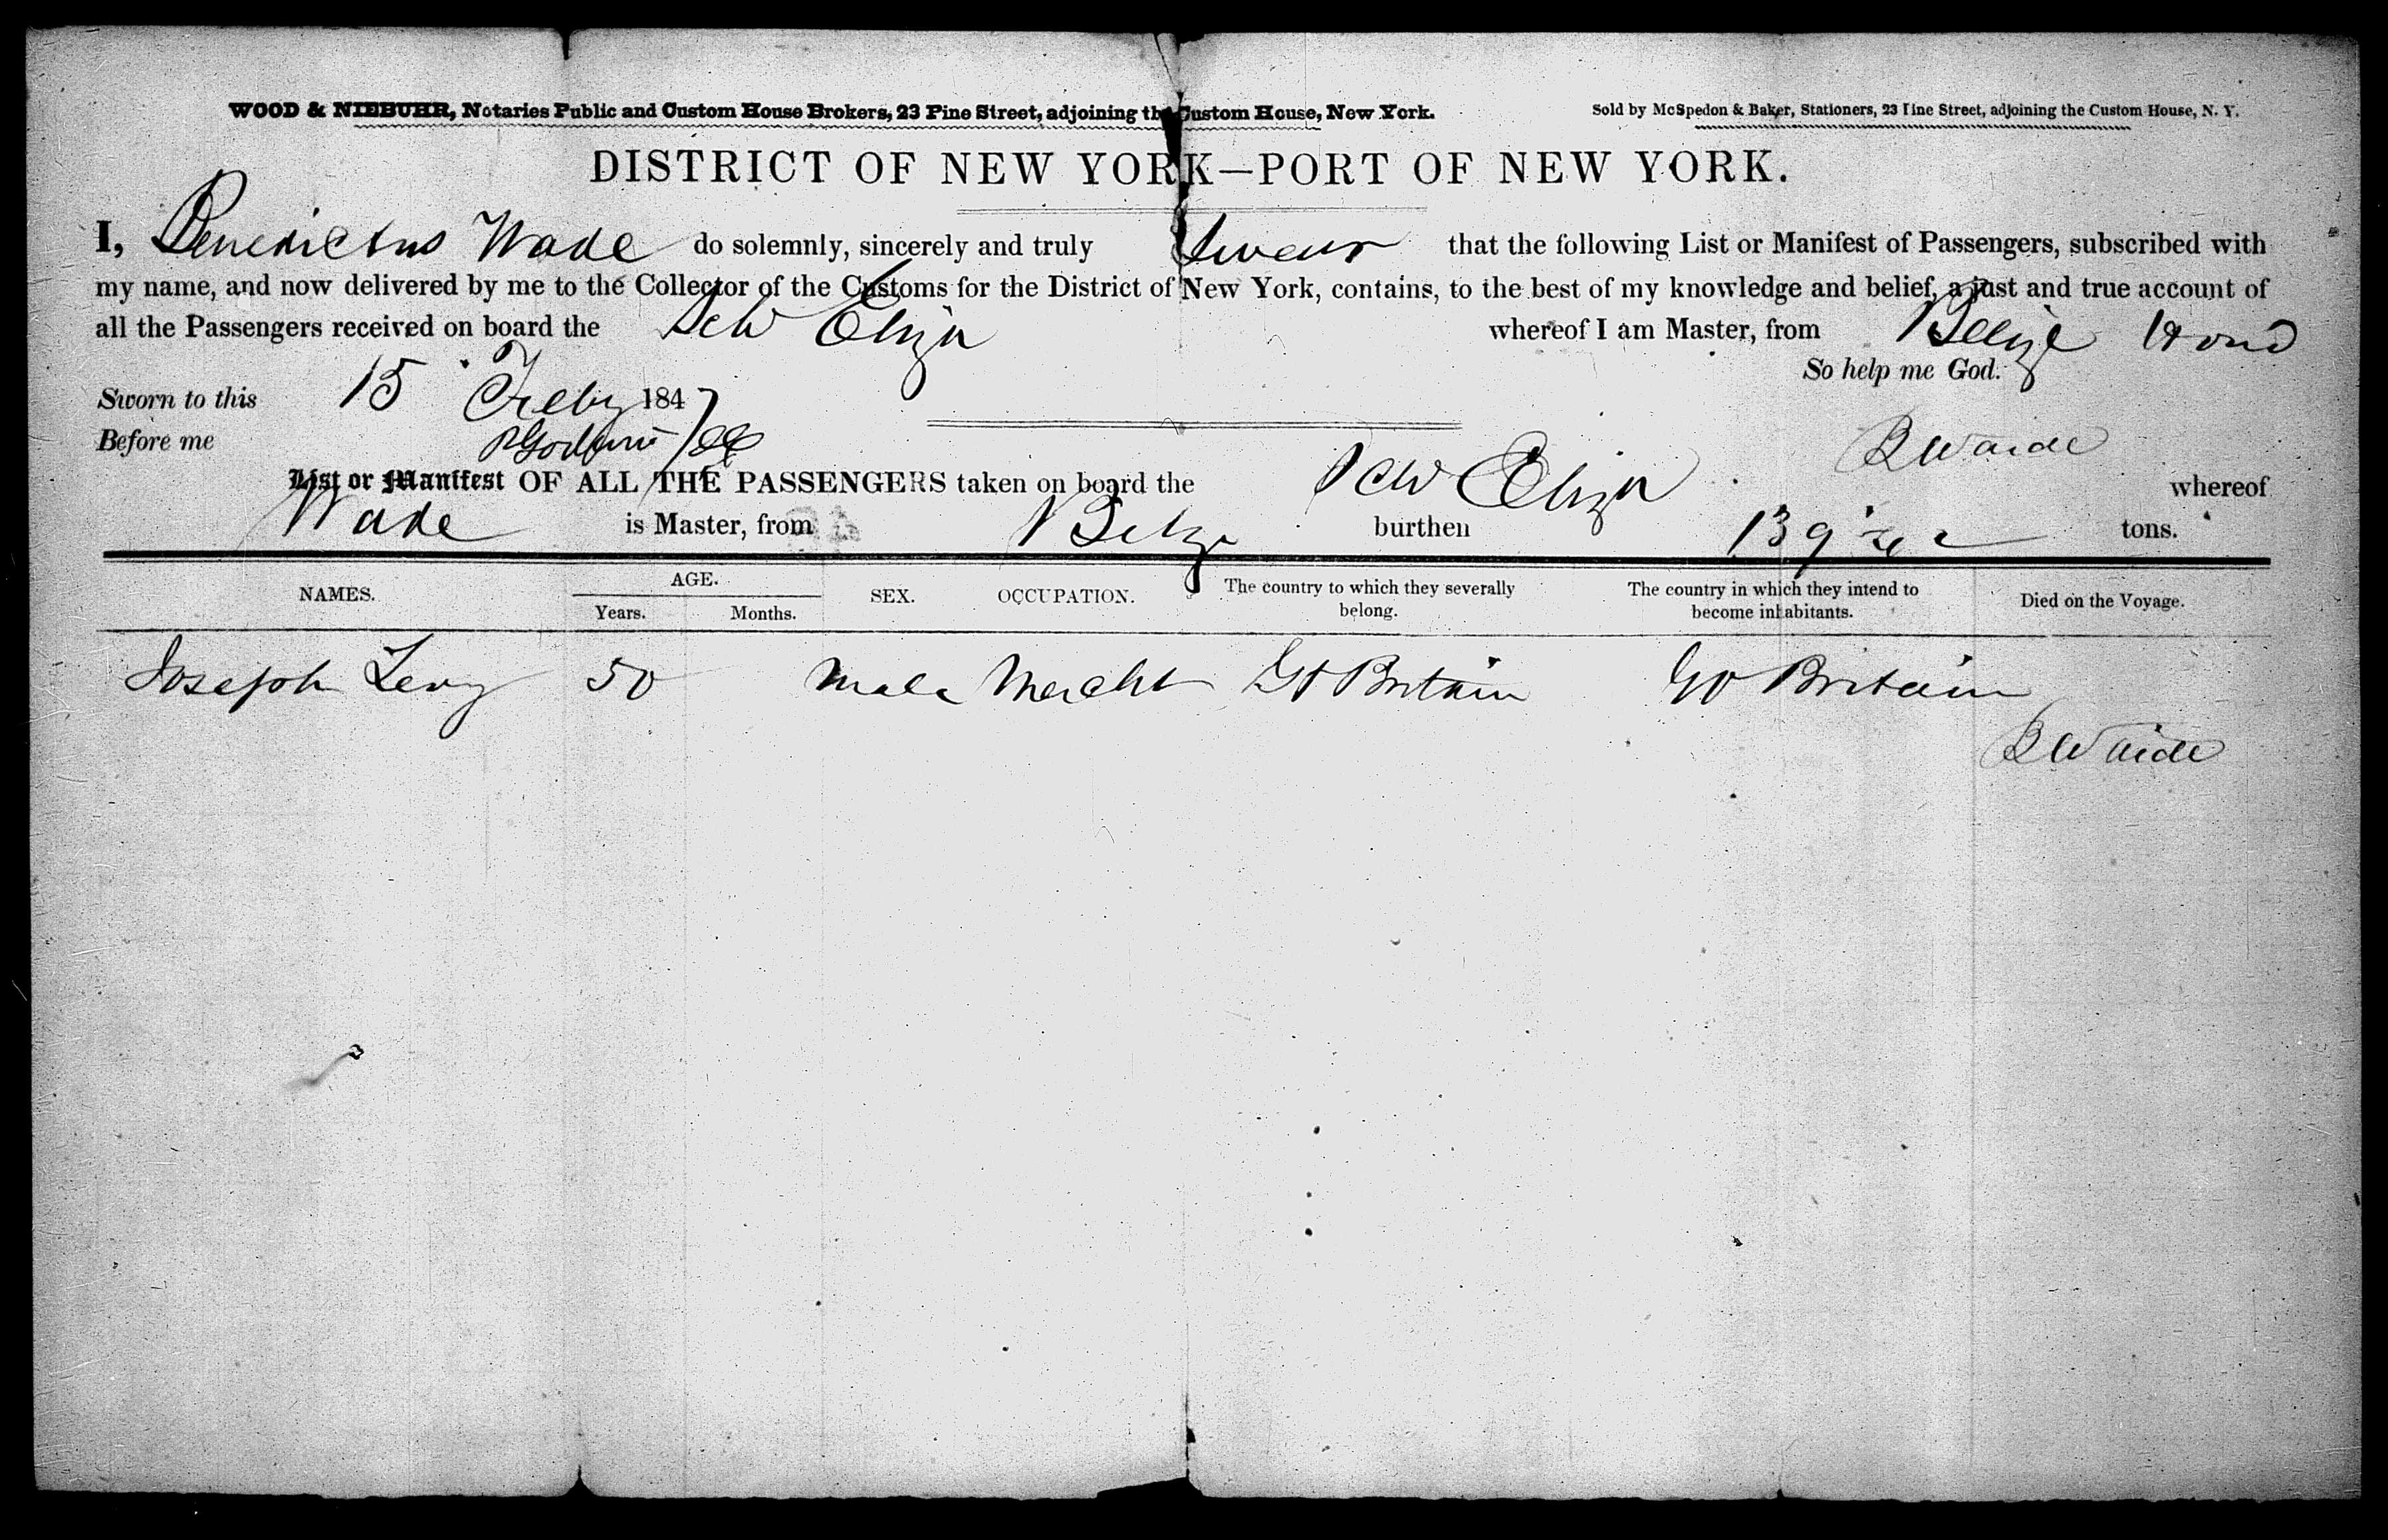 WOOD & NIEBUHR, Notaries Public and Custom House Brokers, 23 Pine Street, adjoining the Custom House, New York.
Sold by McSpedon & Baker, Stationers, 23 Pine Street, adjoining the Custom House, N. Y.
DISTRICT OF NEW YORK—PORT OF NEW YORK.
I, Benedictus Wade do solemnly, sincerely and truly Swear that the following List or Manifest of Passengers, subscribed with
my name, and now delivered by me to the Collector of the Customs for the District of New York, contains, to the best of my knowledge and belief, a just and true account of
all the Passengers received on board the Sch Eliza whereof I am Master, from Belize Hond
So help me God.
Sworn to this 15 Feby 1847
Before me
B Waide
List or Manifest OF ALL THE PASSENGERS taken on board the Sch Eliza whereof
Wade is Master, from Belize burthen 139 tons.
NAMES. AGE. Years. Months. SEX. OCCUPATION. The country to which they severally belong. The country in which they intend to become inhabitants. Died on the Voyage.
Joseph Levy 50 Male Mercht Gt Britain Gt Britain
B Waide